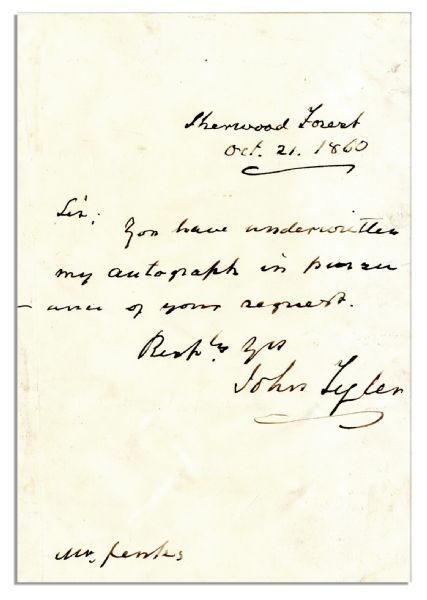 Sherwood Forest
Oct. 21. 1860
Sir;
You have underwritten
my autograph in pursu
-ance of your request.
Resply Yrs
John Tyler
Mr.